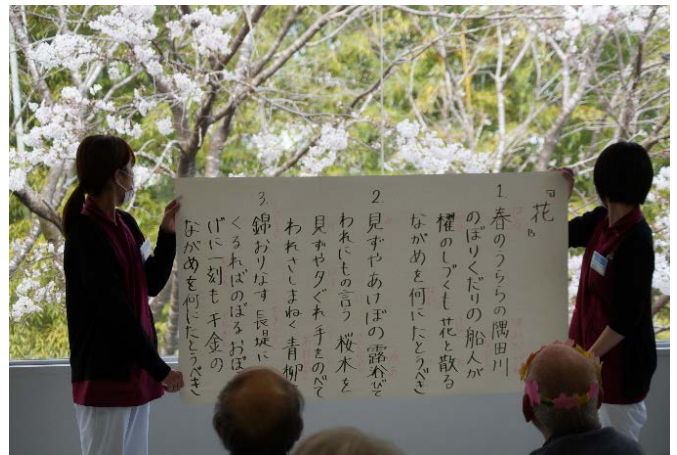 『花』
1. 春のうららの隅田川
のぼりくだりの船人が
櫂のしづくも花と散る
ながめを何にたとうべき
2. 見ずやあけぼの露浴びて
われにもの言う桜木を
見ずや夕ぐれ手をのべて
われさしまねく青柳
3. 錦おりなす長堤に
くるればのぼるおぼ
げに一刻も千金の
ながめを何にたとうべき